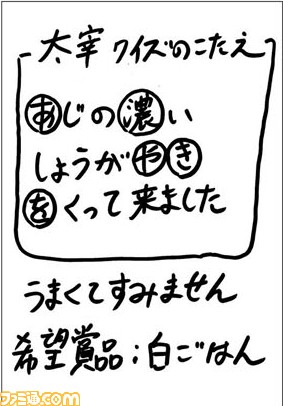 太宰クイズのこたえ
あじの濃い
しょうがやき
をくって来ました
うまくてすみません
希望賞品;白ごはん
ファミ通.com